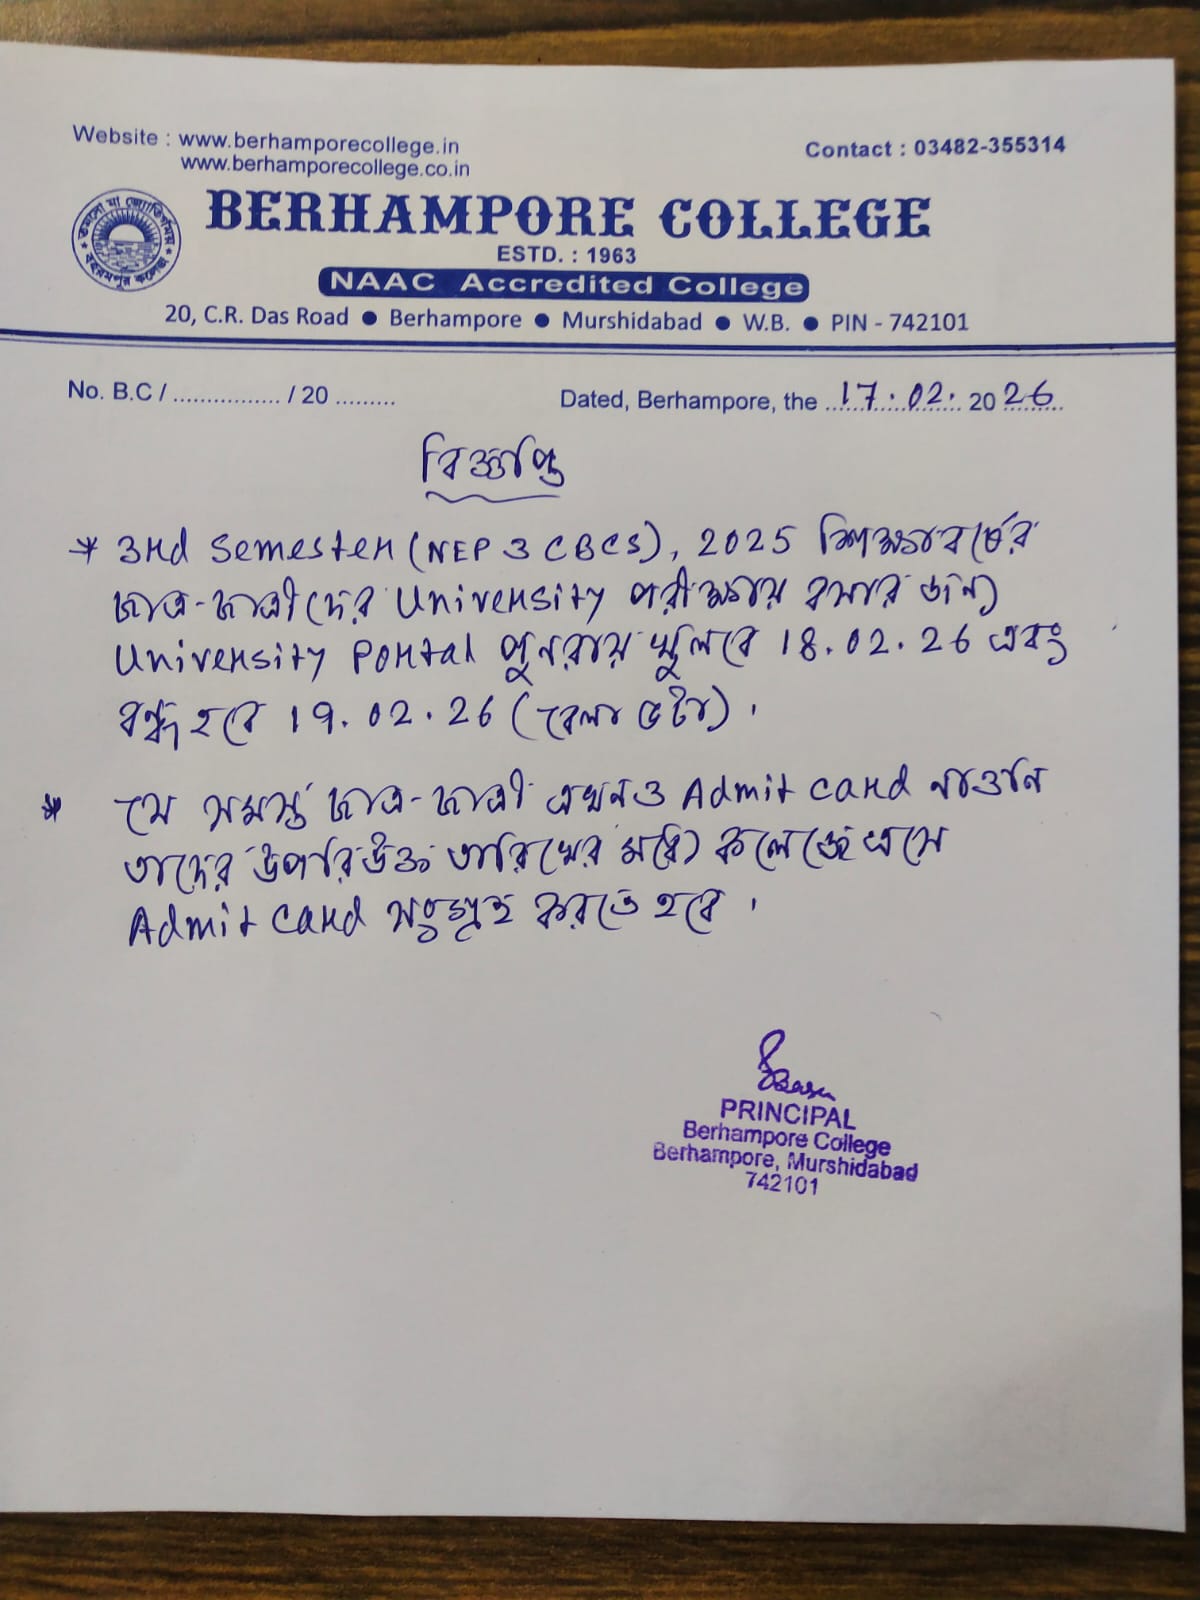 Website : www.berhamporecollege.in
www.berhamporecollege.co.in
Contact : 03482-355314
তমসো মা জ্যোতির্গময়
বহরমপুর কলেজ
BERHAMPORE COLLEGE
ESTD. : 1963
NAAC Accredited College
20, C.R. Das Road ● Berhampore ● Murshidabad ● W.B. ● PIN - 742101
No. B.C / ................ / 20 .........
Dated, Berhampore, the 17.02. 2026
বিজ্ঞপ্তি
* 3rd Semester (NEP ও CBCS), 2025 শিক্ষাবর্ষের
ছাত্র-ছাত্রীদের University পরীক্ষায় বসার জন্য
University Portal পুনরায় খুলবে 18.02.26 এবং
বন্ধ হবে 19.02.26 (বেলা ৩টা)।
* যে সমস্ত ছাত্র-ছাত্রী এখনও Admit Card নাওনি
তাদের উপরিউক্ত তারিখের মধ্যে কলেজে এসে
Admit Card সংগ্রহ করতে হবে।
SBasu
PRINCIPAL
Berhampore College
Berhampore, Murshidabad
742101